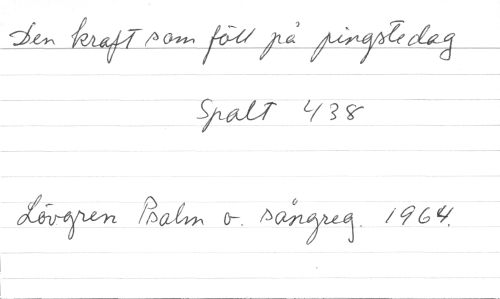 Den kraft som föll på pingstedag
Spalt 438
Lövgren Psalm o. sångreg. 1964.